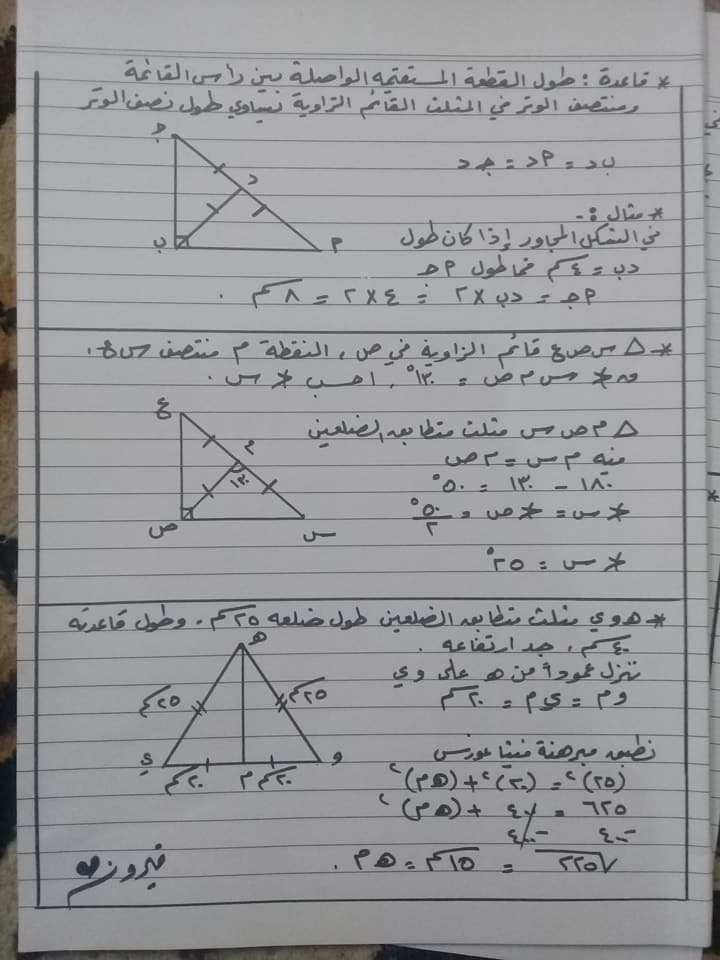 * قاعدة : طول القطعة المستقيمة الواصلة بين رأس القائمة
ومنتصف الوتر في المثلث القائم الزاوية يساوي طول نصف الوتر
ب د = م د = جـ د
جـ
د
ب
م
* مثال :-
في الشكل المجاور إذا كان طول
د ب = ٤ كم فما طول م جـ
م جـ = د ب × ٢ = ٤ × ٢ = ٨ كم .
* △ س ص ع قائم الزاوية في ص ، النقطة م منتصف س ع .
و ∢ س م ص = ١٣٠° ، احسب ∢ س .
ع
م
١٣٠
ص
س
△ م ص س مثلث متطابق الضلعين
فيه م س = م ص
١٨٠ - ١٣٠ = ٥٠°
∢ س = ∢ ص = ٥٠° / ٢
∢ س = ٢٥°
* هـ و ي مثلث متطابق الضلعين طول ضلعه ٢٥ كم . وطول قاعدته
٤٠ كم ، جد ارتفاعه .
ننزل عموداً من هـ على و ي
و م = ي م = ٢٠ كم
هـ
٢٥ كم
٢٥ كم
ي
و
٢٠ كم
م
٢٠ كم
نطبق مبرهنة فيثاغورس
(٢٥)٢ = (٢٠)٢ + (هـ م)٢
٦٢٥ = ٤٠٠ + (هـ م)٢
-٤٠٠ -٤٠٠
√٢٢٥ = ١٥ كم = هـ م .
فيروز